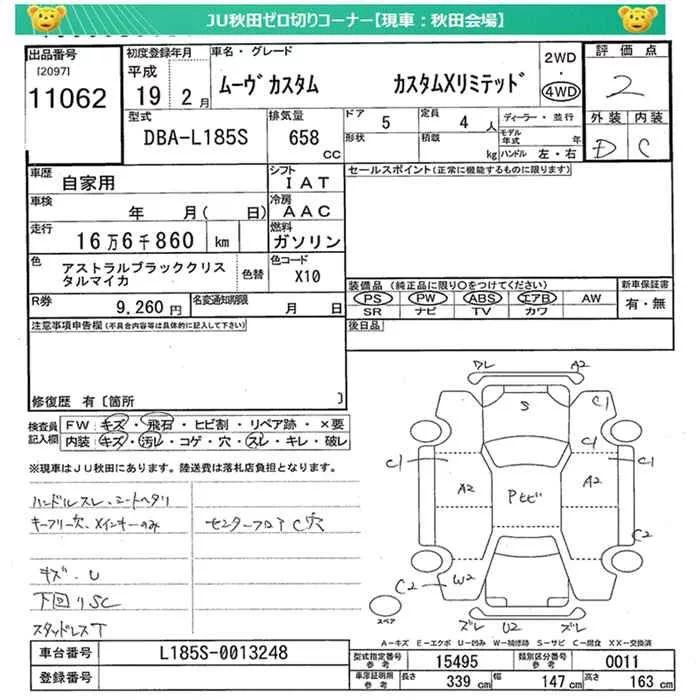 JU秋田ゼロ切りコーナー【現車：秋田会場】
出品番号
[2097]
11062
初度登録年月
平成
19 2月
車名・グレード
ムーヴ カスタム カスタムXリミテッド
2WD
・
4WD
評価点
2
外装 内装
D C
型式
DBA-L185S
排気量
658
CC
ドア 5
定員 4 人
形状
積載
kg
ディーラー・並行
モデル年式 年
ハンドル 左・右
車歴
自家用
シフト
IAT
セールスポイント(正常に機能するものに限ります)
車検
年 月( 日)
冷房
AAC
走行
16万6千860 km
燃料
ガソリン
色
アストラルブラッククリス
タルマイカ
色替
色コード
X10
装備品 (純正品に限り○をつけてください)
PS PW ABS エアB AW
SR ナビ TV カワ
新車保証書
有・無
R券
9,260円
名変通知期限
月 日
後日品
注意事項申告欄(不具合内容等は具体的に記入して下さい)
修復歴 有〔箇所 〕
検査員
記入欄
FW: キズ・飛石・ヒビ割・リペア跡・×要
内装: キズ・汚レ・コゲ・穴・スレ・キレ・破レ
※現車はJU秋田にあります。陸送費は落札店負担となります。
ハンドルスレ、シートヘタリ
キーフリー欠、メインキーのみ
センターフロア C穴
キズ、U
下回リSC
スタッドレスT
ズレ A2
S
C1
C1 C1
A2 Pヒビ A2
C2
C2 W2
スペア
ズレ U2 ズレ
A−キズ E−エクボ U−凹み W−補修跡 S−サビ C−腐食 XX−交換済
車台番号
L185S-0013248
登録番号
型式指定番号
参考
15495
類別区分番号
参考
0011
車庫証明用
参考
長さ 339 cm
幅 147 cm
高さ 163 cm